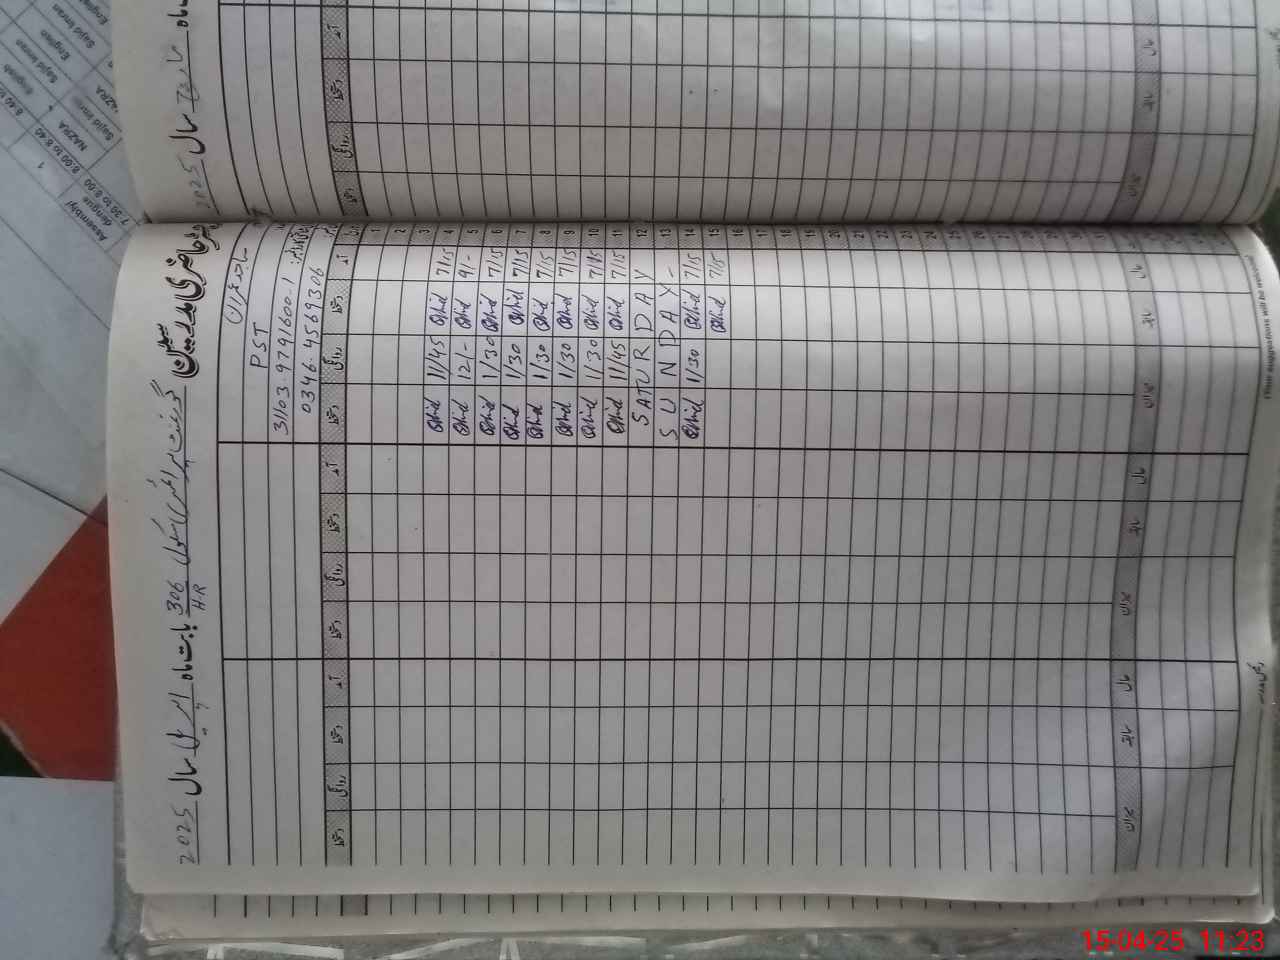 رجسٹر حاضری مدرسین گورنمنٹ پرائمری سکول 306 H.R بابت ماہ اپریل سال 2025
PST
31103-9791600-1
0346-4569306
آمد دستخط روانگی دستخط آمد دستخط روانگی دستخط آمد دستخط روانگی دستخط
1
2
3
4 7/15 11/45
5 9/- 12/-
6 7/15 1/30
7 7/15 1/30
8 7/15 1/30
9 7/15 1/30
10 7/15 1/30
11 7/15 11/45
12 SATURDAY
13 SUNDAY-
14 7/15 1/30
15 7/15
16
17
18
19
20
21
22
23
24
25
26
27
28
29
30
31
حال سابقہ میزان حال سابقہ میزان حال سابقہ میزان
(Your suggestions will be welcome)
سال 2025
آمد دستخط روانگی دستخط
حال سابقہ میزان
Assembly/
dengue
7:30 to 8:00
8:00 to 8:40
NAZRA
Sajid Imran
English
1
15-04-25 11:23